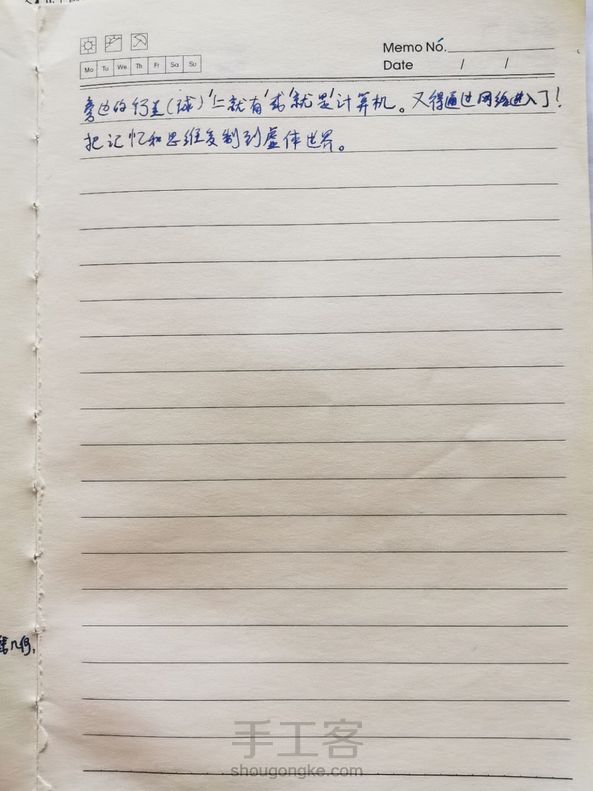 Memo No.
Date / /
Mo Tu We Th Fr Sa Su
旁边的行星(球)上就有'或'就是'计算机。又得通过网络进入了!
把记忆和思维复制到虚体世界。
手工客
shougongke.com